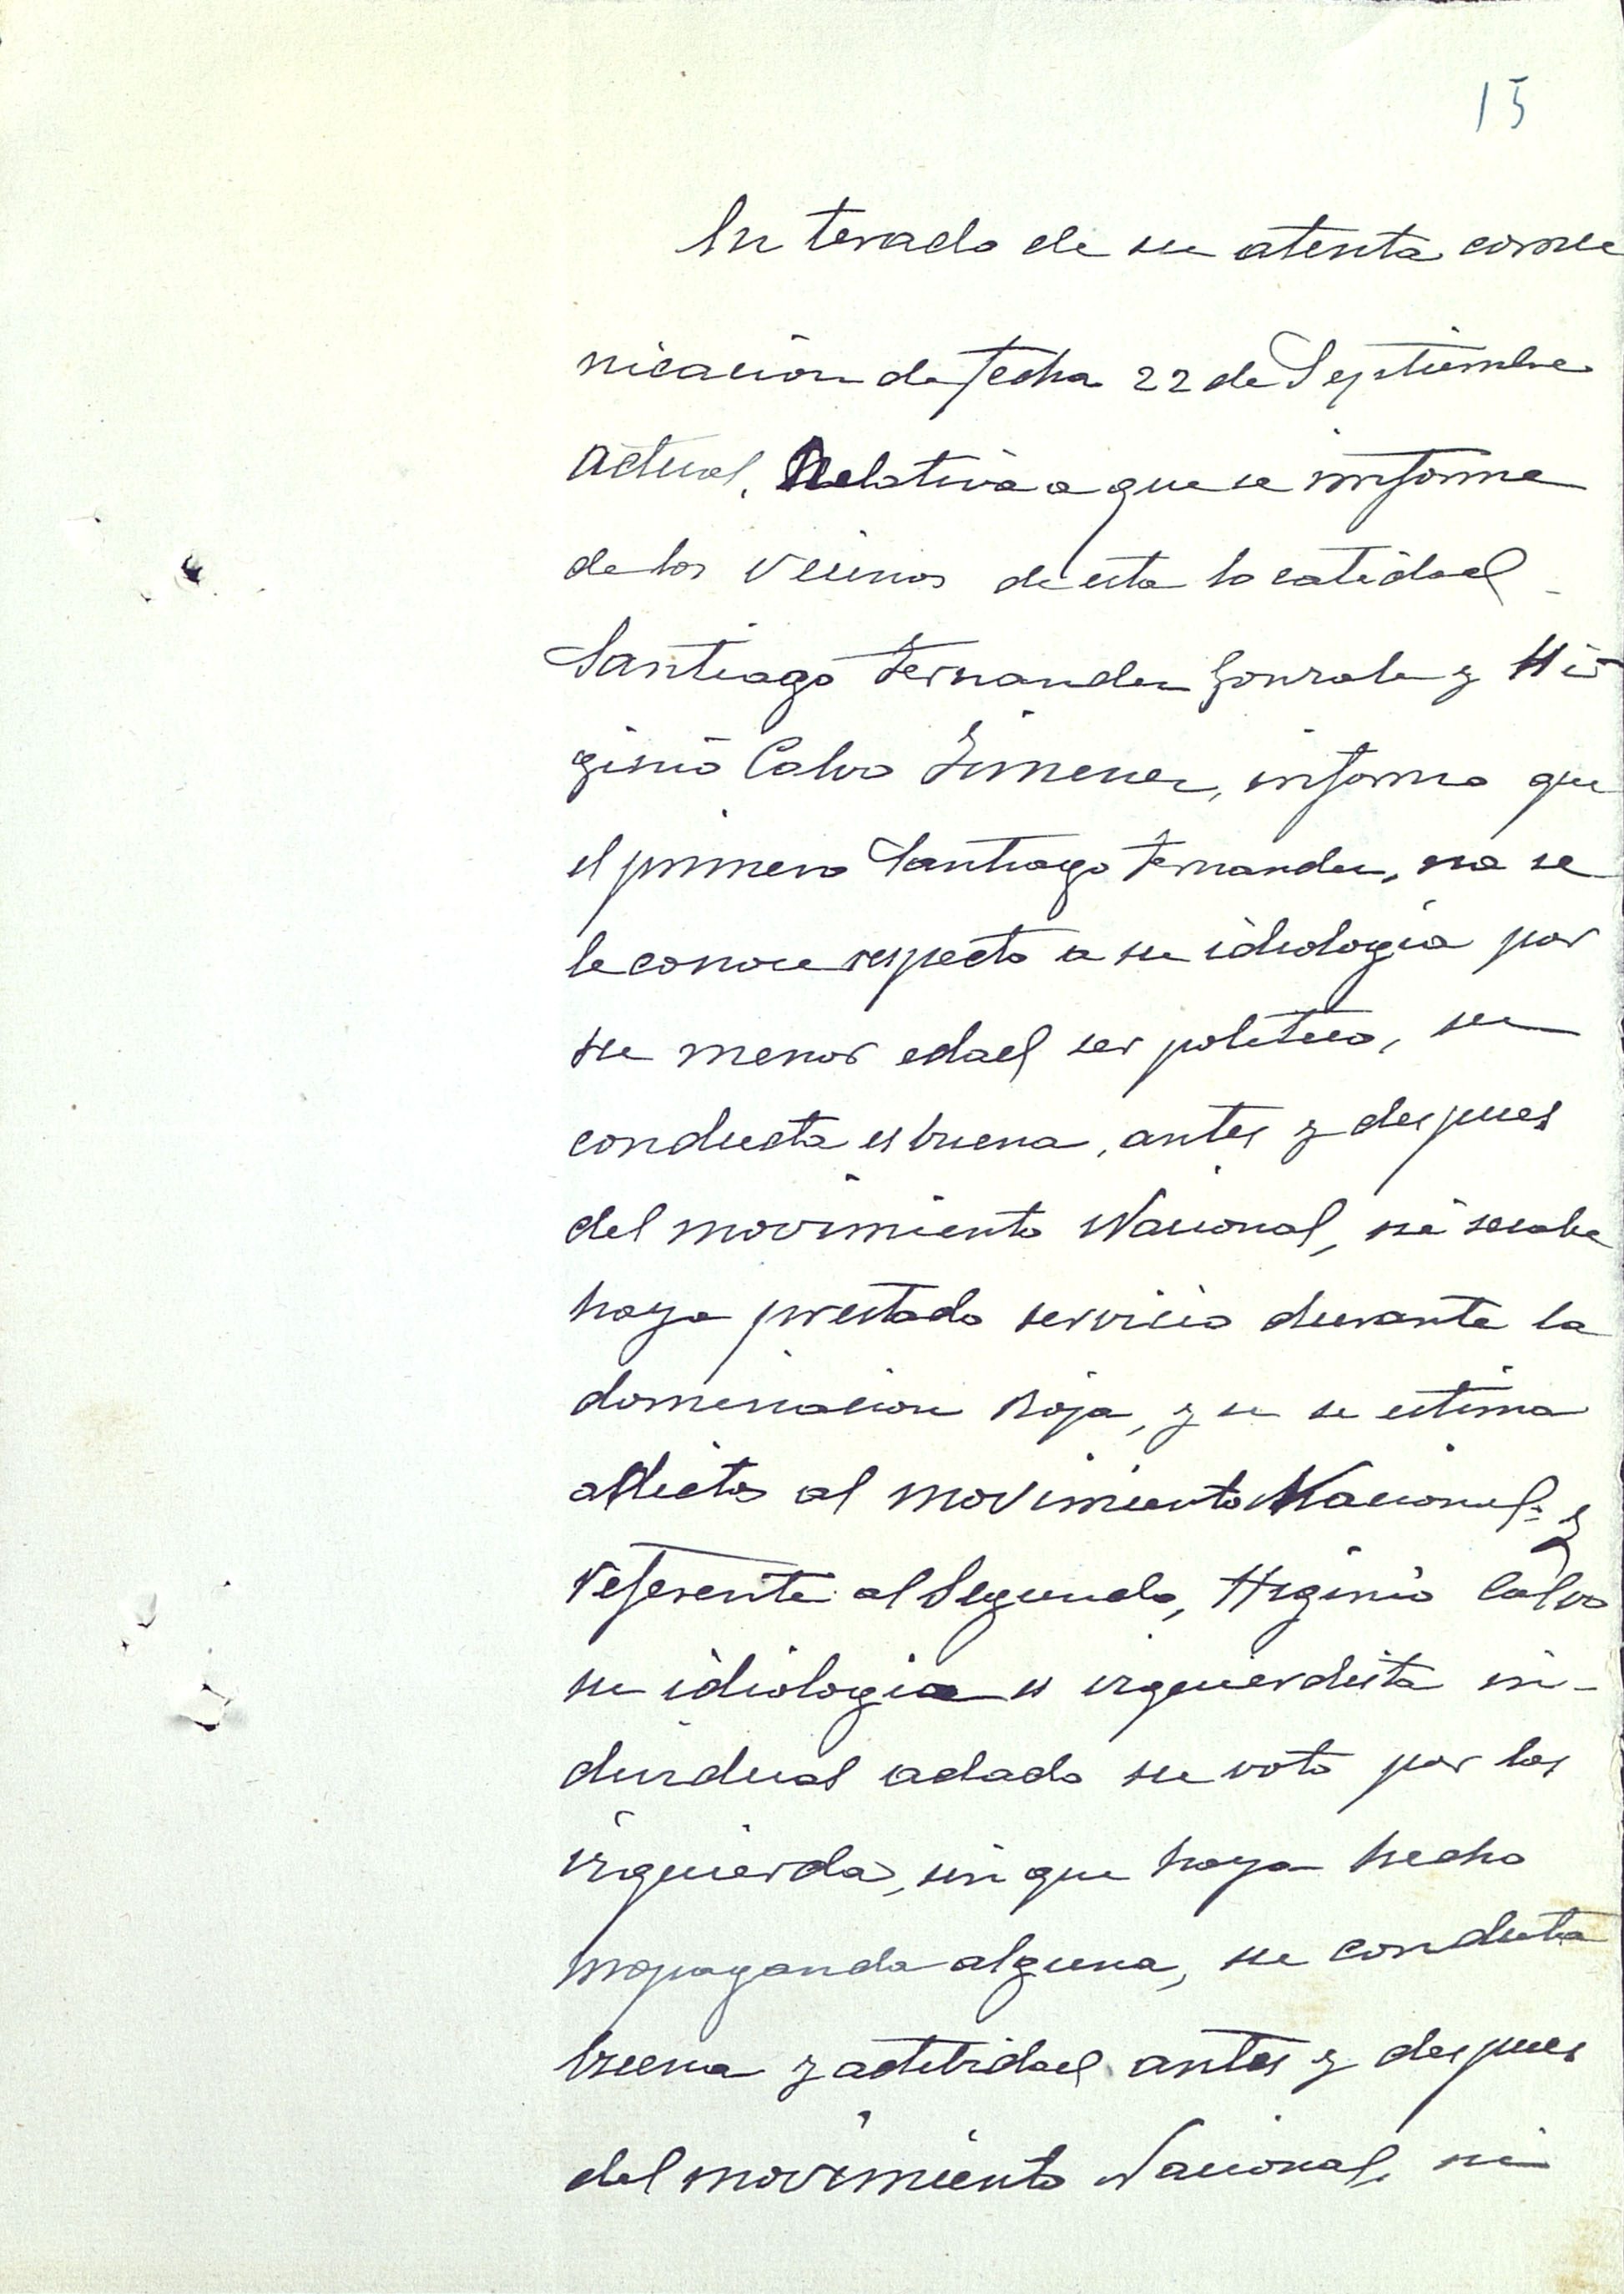 15
In terado de su atenta comu
nicacion de fecha 22 de Septiembre
actual, Relativa a que se imforme
de los vecinos de esta localidad
Santiago Fernandez Gonzalez y Hi-
ginio Calvo Jimenez, informo que
el primero Santiago Fernandez, no se
le conoce respecto a su ideologia por
su menor edad ser politico, su
conducta es buena, antes y despues
del movimiento Nacional, ni se sabe
haya prestado servicio durante la
dominacion Roja, y se se estima
afecto al movimiento Nacional; y
referente al Segundo, Higinio Calvo
su idiologia es izquierdista in-
dividual adado su voto por las
izquierda, sin que haya hecho
propaganda alguna, su conducta
buena y actividad antes y despues
del movimiento Nacional, ni